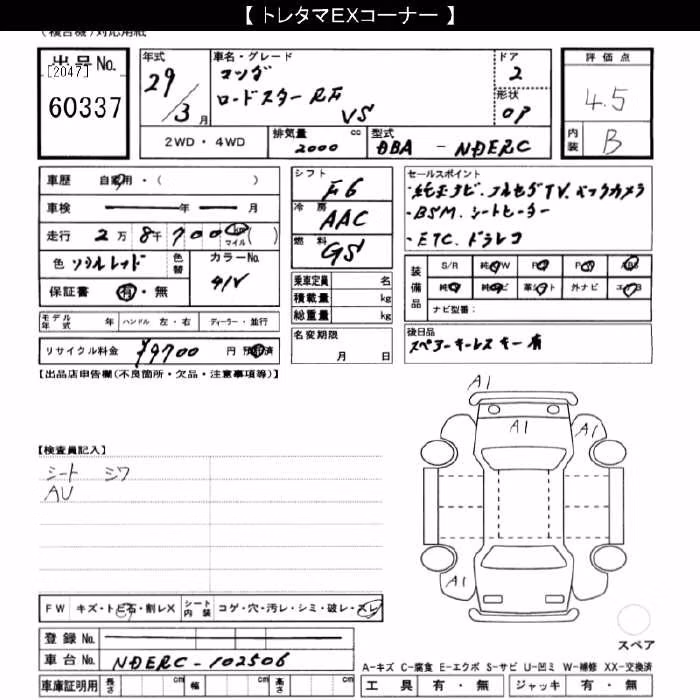 【 トレタマEXコーナー 】
（複合機）対応用紙
出品No.
[2047]
60337
年式
29/3月
車名・グレード
マツダ
ロードスターRF
VS
ドア
2
形状
OP
評価点
4.5
内装
B
2WD・4WD
排気量
2000 cc
型式
DBA - NDERC
車歴 自家用・( )
車検 年 月
走行 2万8千700 km マイル ( )
色 ソウルレッド 色替
カラーNo.
41V
保証書 有・無
シフト
F6
冷房
AAC
燃料
GS
乗車定員 名
積載量 kg
総重量 kg
セールスポイント
・純正ナビ.フルセグTV.バックカメラ
・BSM.シートヒーター
・ETC.ドラレコ
装備品
S/R 純AW P.S P.W ABS
純TV 純ナビ 革シート 外ナビ エアB
ナビ型番:
モデル年式 年 ハンドル 左・右 ディーラー・並行
リサイクル料金 ¥9700 円 預託済
名変期限
月 日
後日品
スペアーキーレスキー有
【出品店申告欄(不良箇所・欠品・注意事項等)】
【検査員記入】
シート シワ
AU
A1
A1
A1
A1
FW キズ・トビ石・割レX シート内装 コゲ・穴・汚レ・シミ・破レ・スレ
登録No.
車台No. NDERC-102506
車庫証明用 長さ cm 幅 cm 高さ cm
スペア
A-キズ C-腐食 E-エクボ S-サビ U-凹ミ W-補修 XX-交換済
工具 有・無 ジャッキ 有・無